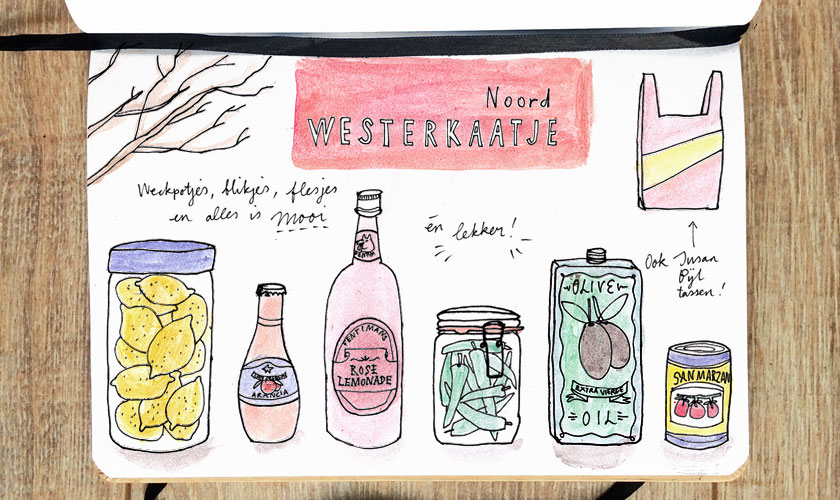 Noord
WESTERKAATJE
Weckpotjes, blikjes, flesjes
en alles is mooi
én lekker!
Ook Susan
Bijl
tassen!
ARANCIA
FENTIMANS
ROSE
LEMONADE
OLIVE
EXTRA VIERGE
OIL
SAN MARZAN